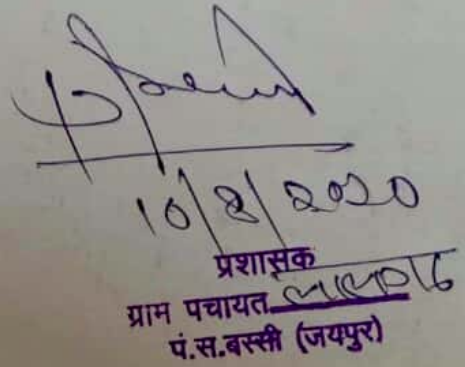 10/8/2020
प्रशासक
ग्राम पचायत लालगढ
पं.स.बस्सी (जयपुर)